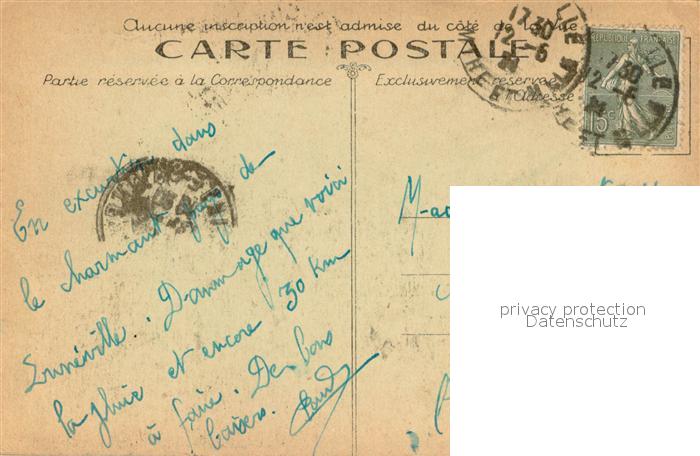 Aucune inscription n'est admise du côté de la vue
CARTE POSTALE
Partie réservée à la Correspondance
Exclusivement réservée
Adresse
RÉPUBLIQUE FRANÇAISE
15c
17 30
12 - 5
17 30
12 - 5
En excursion dans
le charmant pays de
Lunéville. Dommage que voici
la pluie et encore 30 Km
à faire. De bons
baisers.
M-
privacy protection
Datenschutz